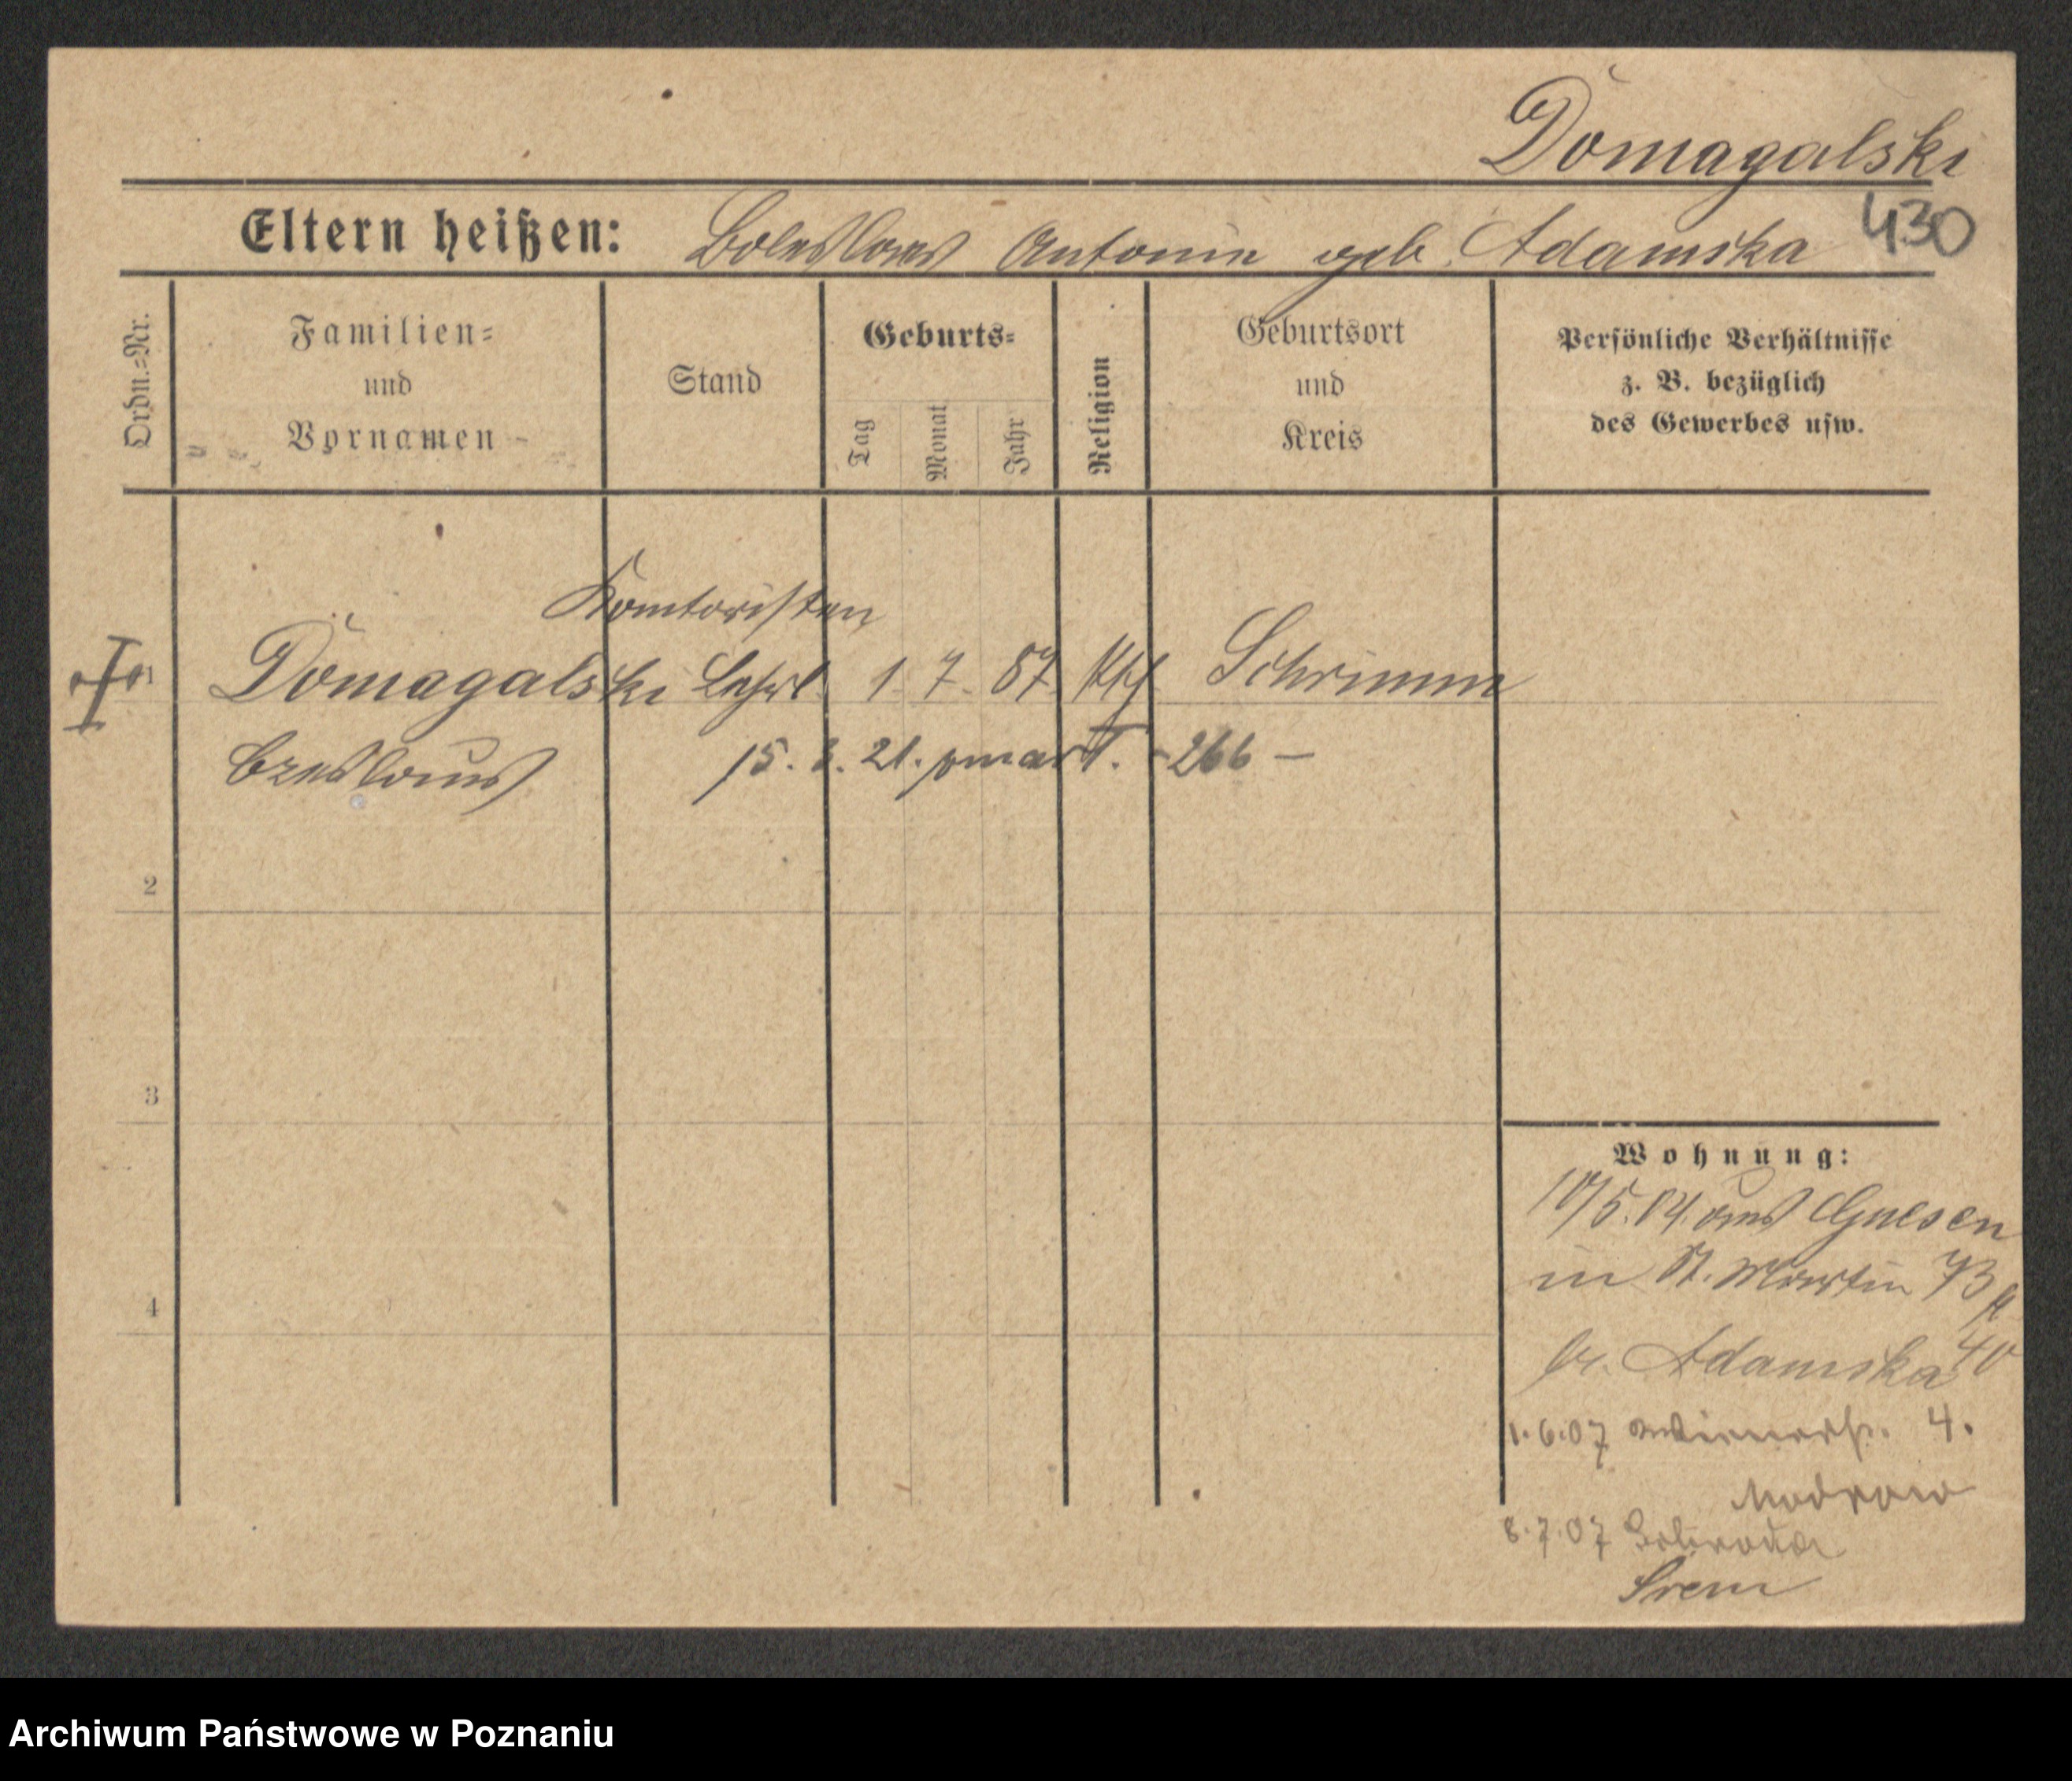 Domagalski
430
Eltern heißen: Boleslaus Antonie geb. Adamska
Ordn.=Nr.
Familien=
und
Vornamen
Stand
Geburts=
Tag
Monat
Jahr
Religion
Geburtsort
und
Kreis
Persönliche Verhältnisse
z. B. bezüglich
des Gewerbes usw.
Kontoristen
1 Domagalski Lehrl. 1. 7. 87. kth. Schrimm
Czeslaus 15. 3. 21. zmarł. - 266 -
2
3
4
Wohnung:
10/5.04. aus Gnesen
in St. Martin 73
b. Adamska 40
1.6.07 4.
8.7.07
Srem
Archiwum Państwowe w Poznaniu